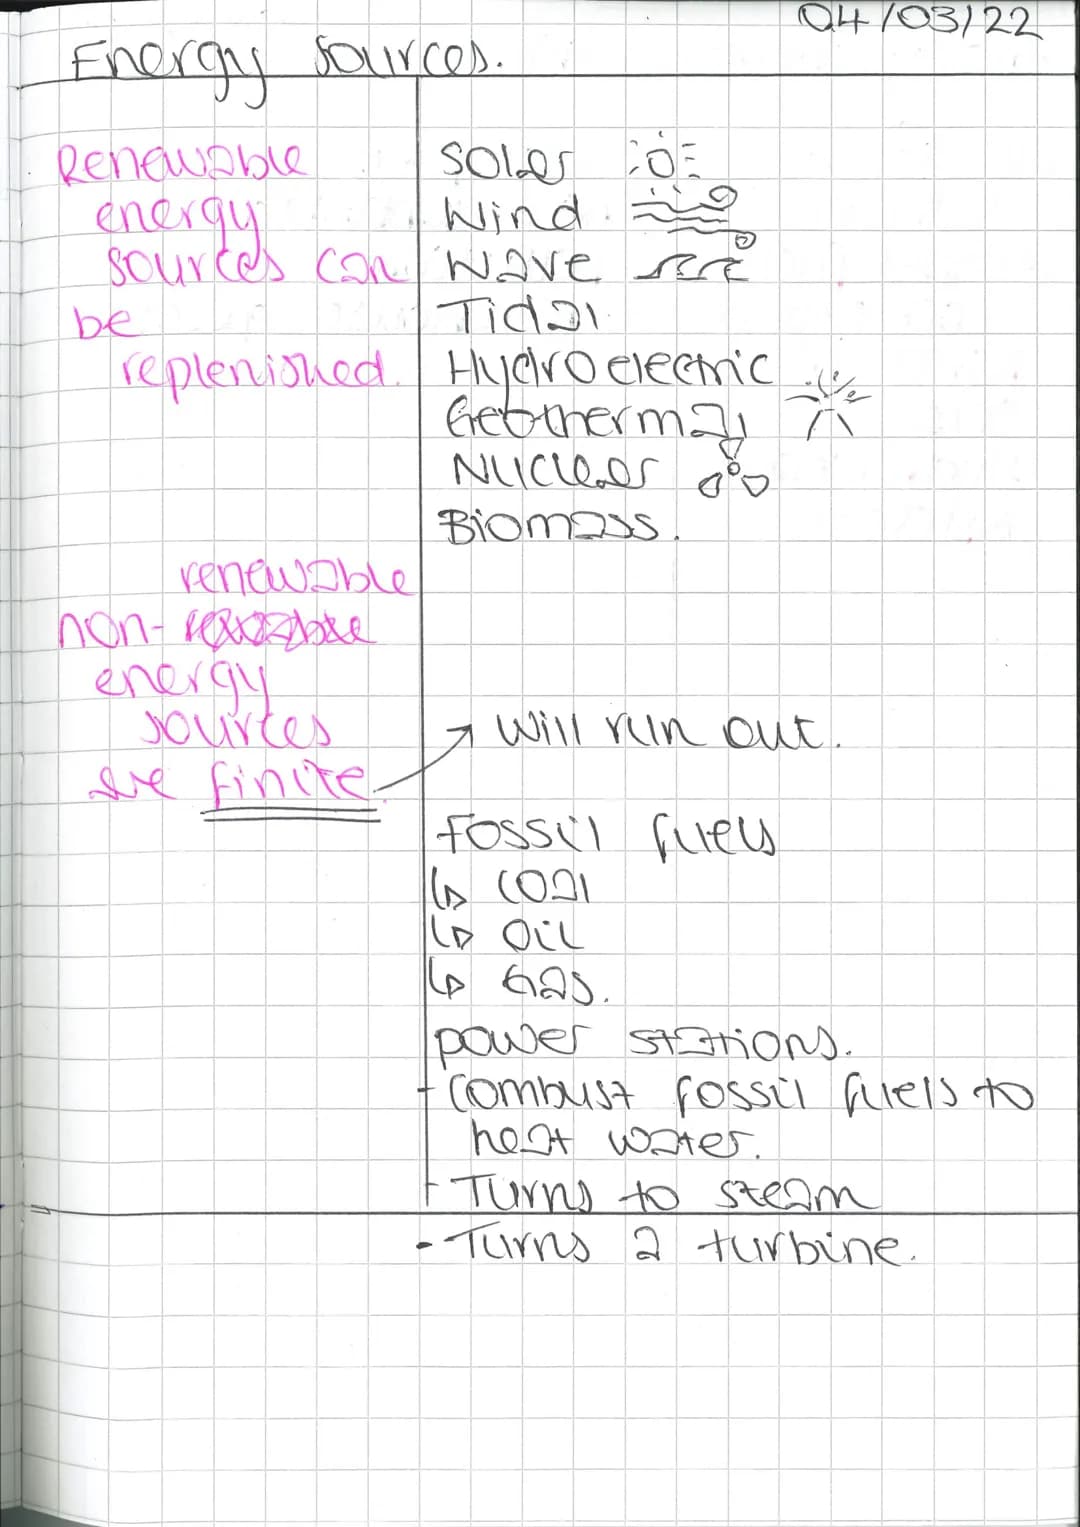 04/03/22
Energy sources.
Renewable
energy
sources can
be
replenished.
Solar
Wind
Wave
Tidal
Hydroelectric
Geothermal
Nuclear
Biomass.
renewable
non-
energy
sources
are finite
→ Will run out.
Fossil fuels
↳ coal
↳ Oil
↳ Gas.
power stations.
- combust fossil fuels to
heat water.
- Turns to steam
- Turns a turbine.